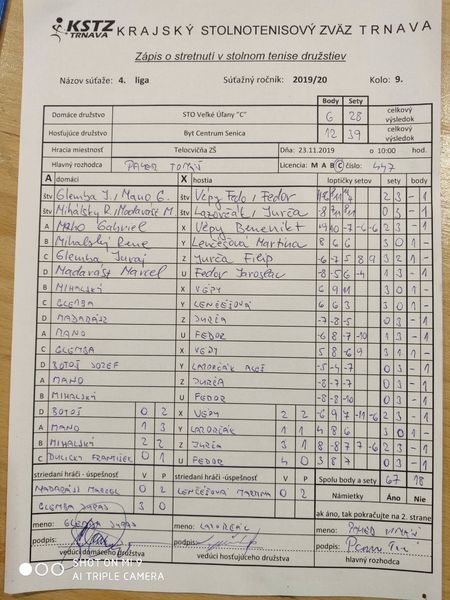 KSTZ TRNAVA KRAJSKÝ STOLNOTENISOVÝ ZVÄZ TRNAVA
Zápis o stretnutí v stolnom tenise družstiev
Názov súťaže: 4. liga Súťažný ročník: 2019/20 Kolo: 9.
Body Sety
Domáce družstvo STO Veľké Úľany "C" 6 28 celkový výsledok
Hosťujúce družstvo Byt Centrum Senica 12 39 celkový výsledok
Hracia miestnosť Telocvičňa ZŠ Dňa: 23.11.2019 o 10:00 hod.
Hlavný rozhodca Licencia: M A B C číslo: 447
A domáci X hostia loptičky setov sety body
štv Glemba J. / Mano G. Vépy Fedo / Fedor 2 3 - 1
štv Mihalský R. / Madaráš M. Lazorčák / Jurča 0 3 - 1
A Mano Gabriel X Vépy Benenikt 2 3 - 1
B Mihalský Rene Y Lenčéšová Martina 8 6 6 3 0 1 -
C Glemba Juraj Z Jurča Filip -6 -7 5 8 9 3 2 1 -
D Madaráš Marcel U Fedor Jaroslav -8 -5 6 -4 1 3 - 1
B MIHALSKÝ X VÉPY 6 9 11 3 0 1 -
C GLEMBA Y LENČÉŠOVÁ 6 6 3 3 0 1 -
D MADARÁŠ Z JURČA -7 -8 -5 0 3 - 1
A MANO U FEDOR -6 8 -7 -10 1 3 - 1
C GLEMBA X VÉPY 5 8 -6 9 3 1 1 -
D BOTOŠ JOZEF Y -5 -4 -7 0 3 - 1
A MANO Z JURČA -8 -7 -7 0 3 - 1
B MIHALSKÝ U FEDOR -8 -8 -10 0 3 - 1
D BOTOŠ 0 2 X VÉPY 2 2 -6 9 7 -11 -6 2 3 - 1
A MANO 1 3 Y LAZORČÁK 1 1 4 8 6 3 0 1 -
B MIHALSKÝ 2 2 Z JURČA 3 1 8 -8 7 7 -6 2 3 - 1
C DULICKÝ FRANTIŠEK 0 1 U FEDOR 4 0 0 3 - 1
striedaní hráči - úspešnosť V P striedaní hráči - úspešnosť V P Spolu body a sety 67 18
MADARÁŠ MARCEL 0 2 LENČÉŠOVÁ MARTINA 0 2 Námietky Áno Nie
GLEMBA JURAJ 3 0 ak áno, tak pokračujte na 2. strane
meno: GLEMBA JURAJ meno: LAZORČÁK meno:
podpis: podpis: podpis:
vedúci domáceho družstva vedúci hosťujúceho družstva hlavný rozhodca
SHOT ON MI 9
AI TRIPLE CAMERA